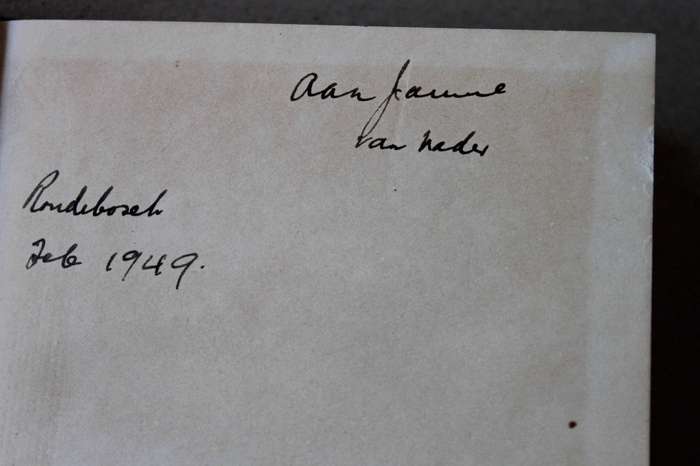 Aan Jannie
van Vader
Rondebosch
Feb 1949.